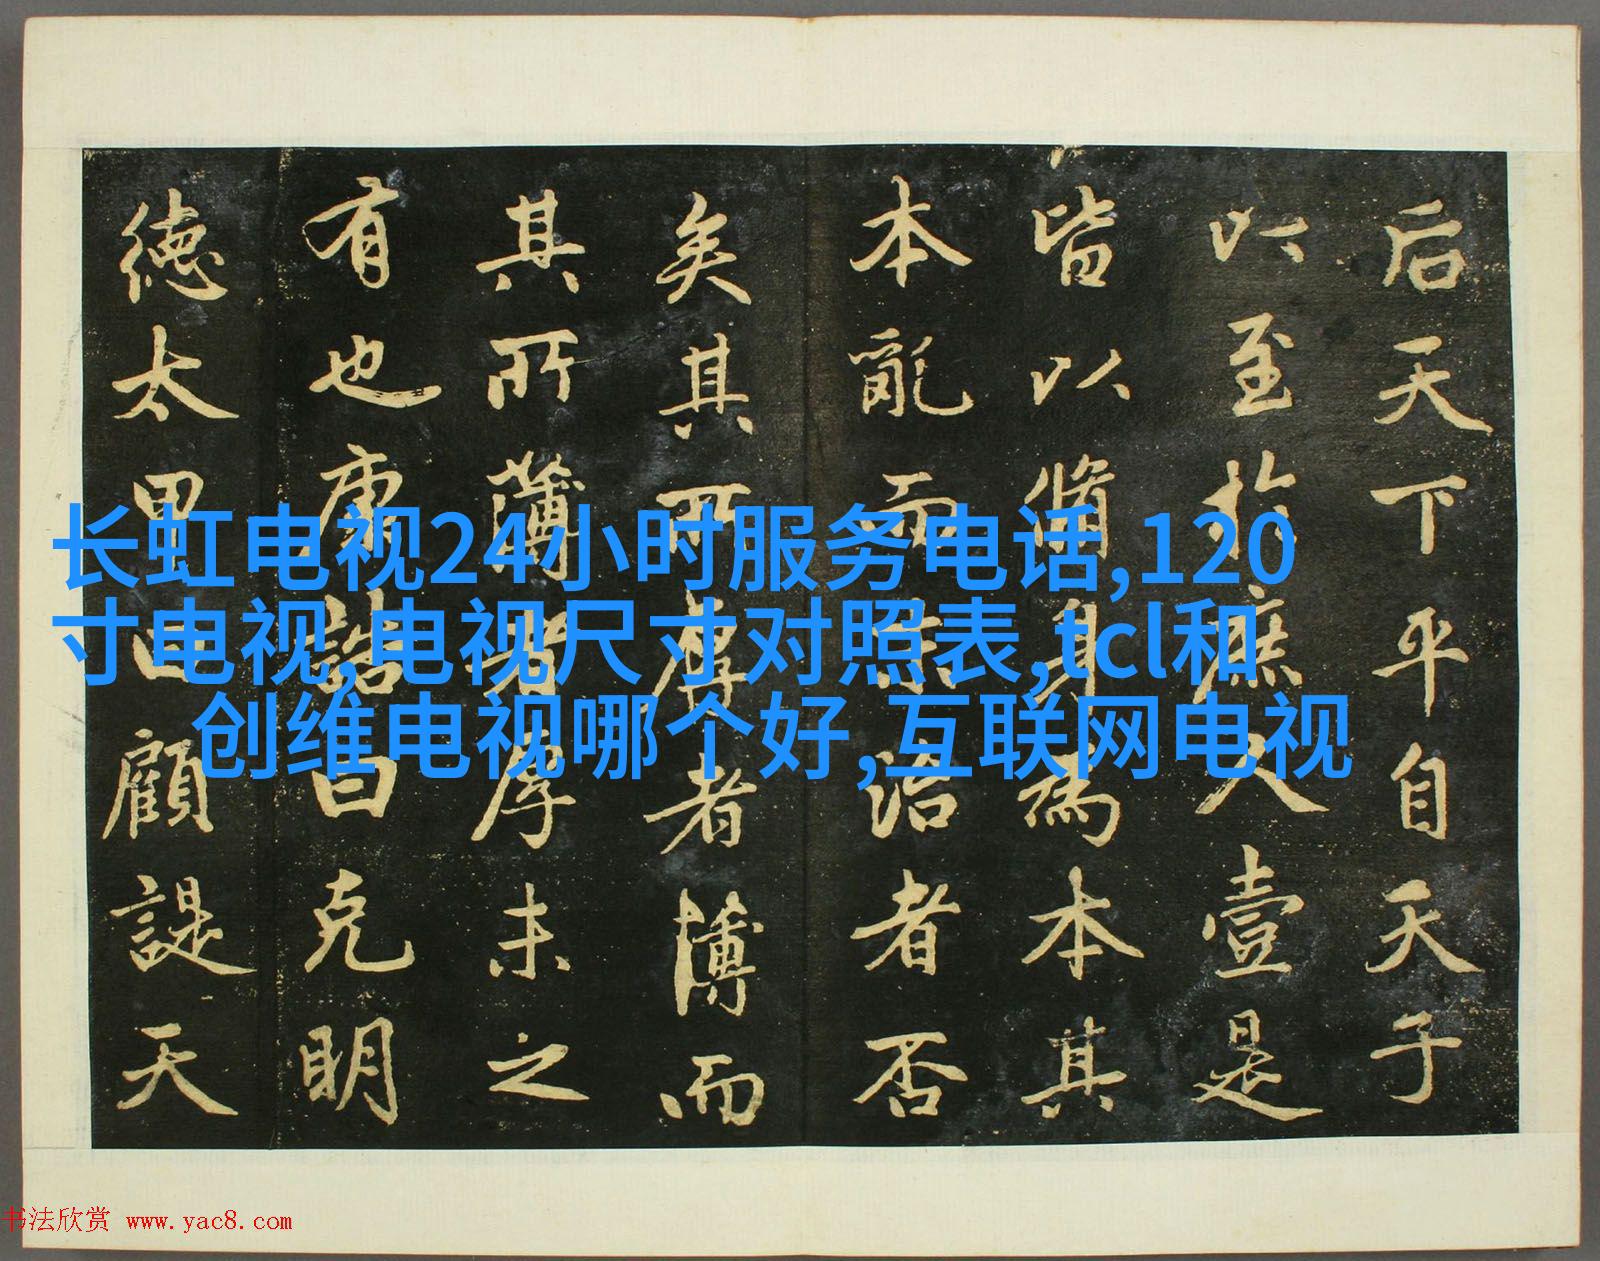 后天下平自天子
以至於庶人壹是
皆以脩身為本其
本亂而末治者否
矣其所厚者薄而
其所薄者厚未之
有也康誥曰克明
德太甲曰顧諟天
长虹电视24小时服务电话,120
寸电视,电视尺寸对照表,tcl和
创维电视哪个好,互联网电视
书法欣赏 www.yac8.com